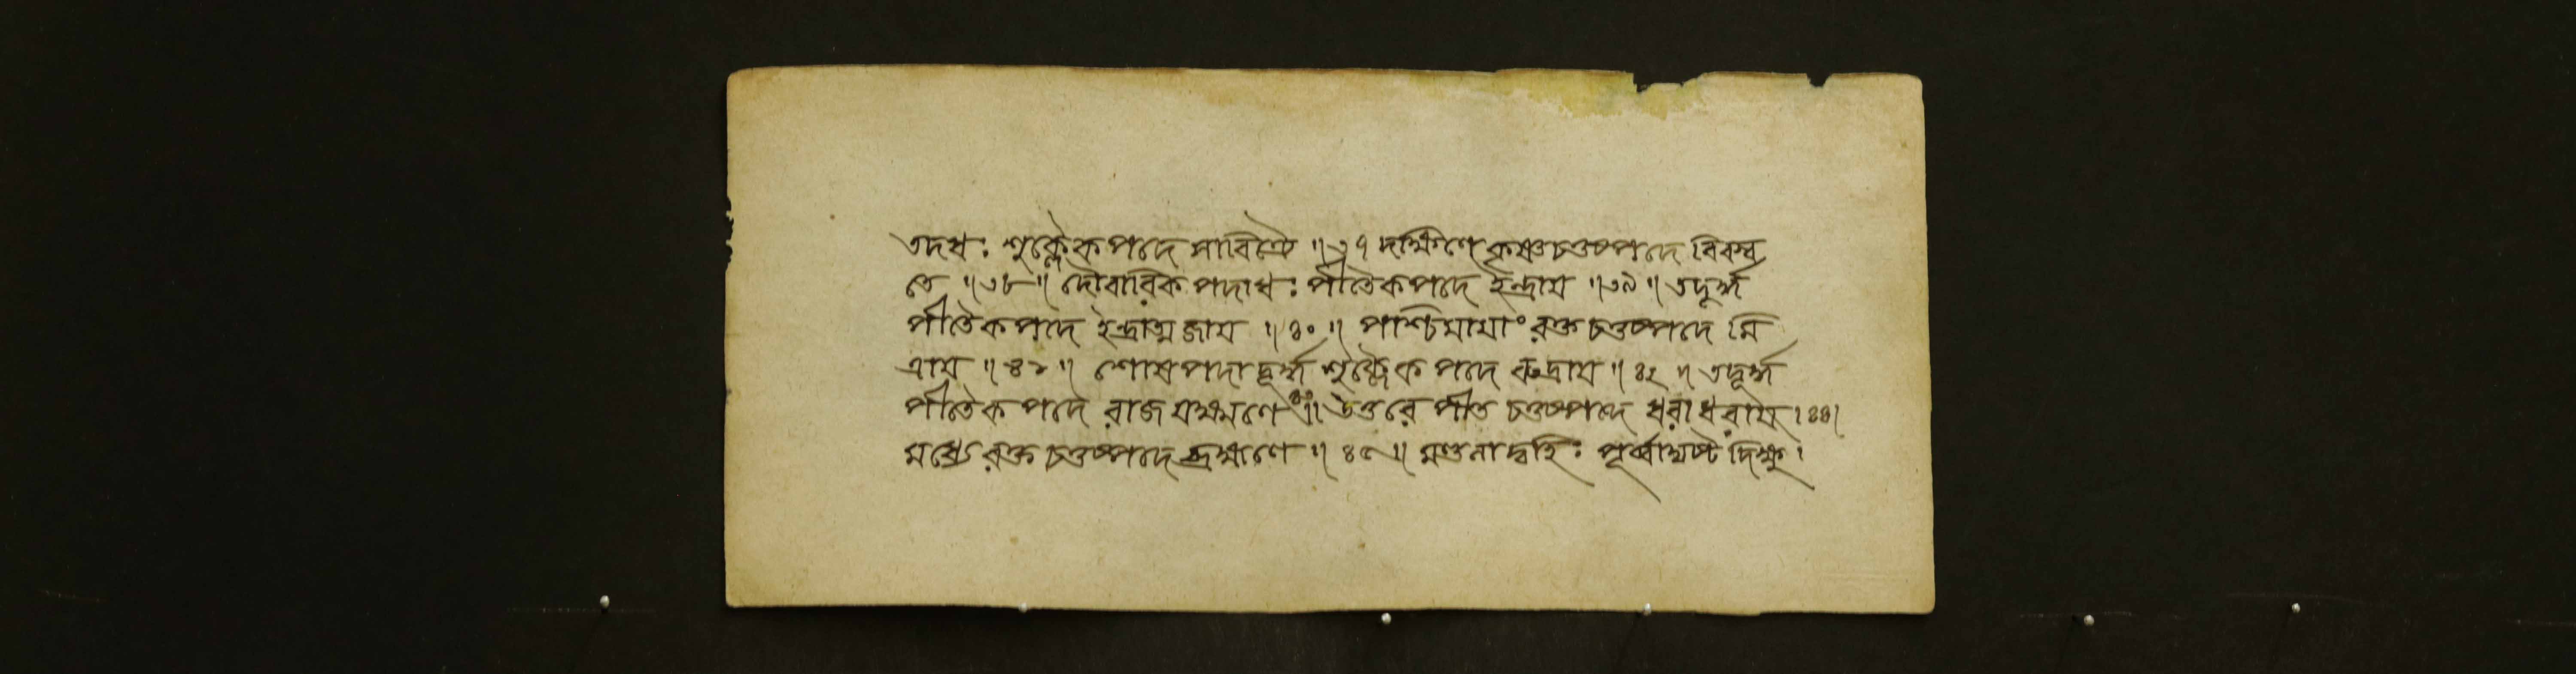 তদধঃ শুক্লৈকপদে সাবিত্রৈ ॥৩৭ দক্ষিণে কৃষ্ণচতুষ্পদে বিবস্ব
তে ॥৩৮॥ দৌবারিকপদাধঃ পীতৈকপদে ইন্দ্রায় ॥৩৯॥ তদূর্দ্ধ
পীতৈকপদে ইন্দ্রাত্মজায় ॥৪০॥ পশ্চিমায়াং রক্তচতুষ্পদে মি
ত্রায় ॥৪১॥ শোষপদাদূর্দ্ধ শুক্লৈকপদে রুদ্রায় ॥৪২॥ তদূর্দ্ধ
পীতৈকপদে রাজযক্ষ্মণে ॥৪৩॥ উত্তরে পীতচতুষ্পদে ধরাধরায় ।৪৪।
মধ্যে রক্তচতুষ্পদে ব্রহ্মণে ॥৪৫॥ মণ্ডলাদ্বহিঃ পূর্ব্বাদ্যষ্টদিক্ষু ।